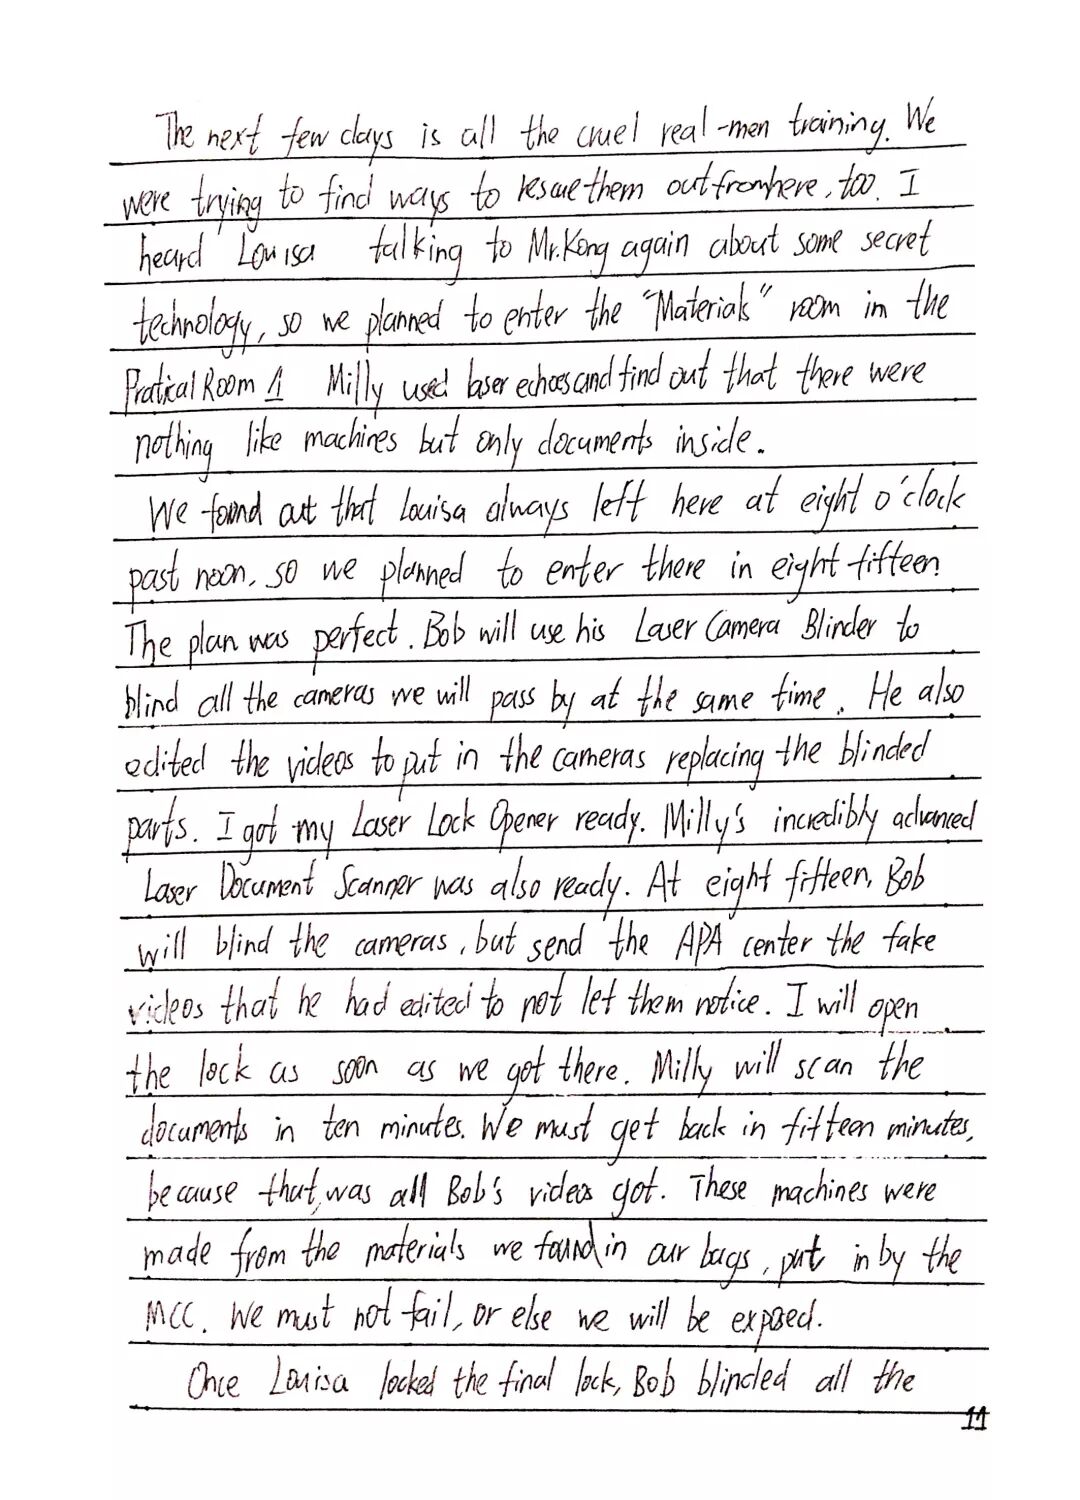 The next few days is all the cruel real-men training. We
were trying to find ways to rescue them out from here, too. I
heard Louisa talking to Mr.Kong again about some secret
technology, so we planned to enter the "Materials" room in the
Pratical Room 1 Milly used laser echoes and find out that there were
nothing like machines but only documents inside.
We found out that Louisa always left here at eight o'clock
past noon, so we planned to enter there in eight fifteen.
The plan was perfect. Bob will use his Laser Camera Blinder to
blind all the cameras we will pass by at the same time. He also
edited the videos to put in the cameras replacing the blinded
parts. I got my Laser Lock Opener ready. Milly's incredibly advanced
Laser Document Scanner was also ready. At eight fifteen, Bob
will blind the cameras, but send the APA center the fake
videos that he had edited to not let them notice. I will open
the lock as soon as we got there. Milly will scan the
documents in ten minutes. We must get back in fifteen minutes,
because that was all Bob's videos got. These machines were
made from the materials we found in our bags, put in by the
MCC. We must not fail, or else we will be exposed.
Once Louisa locked the final lock, Bob blinded all the
11